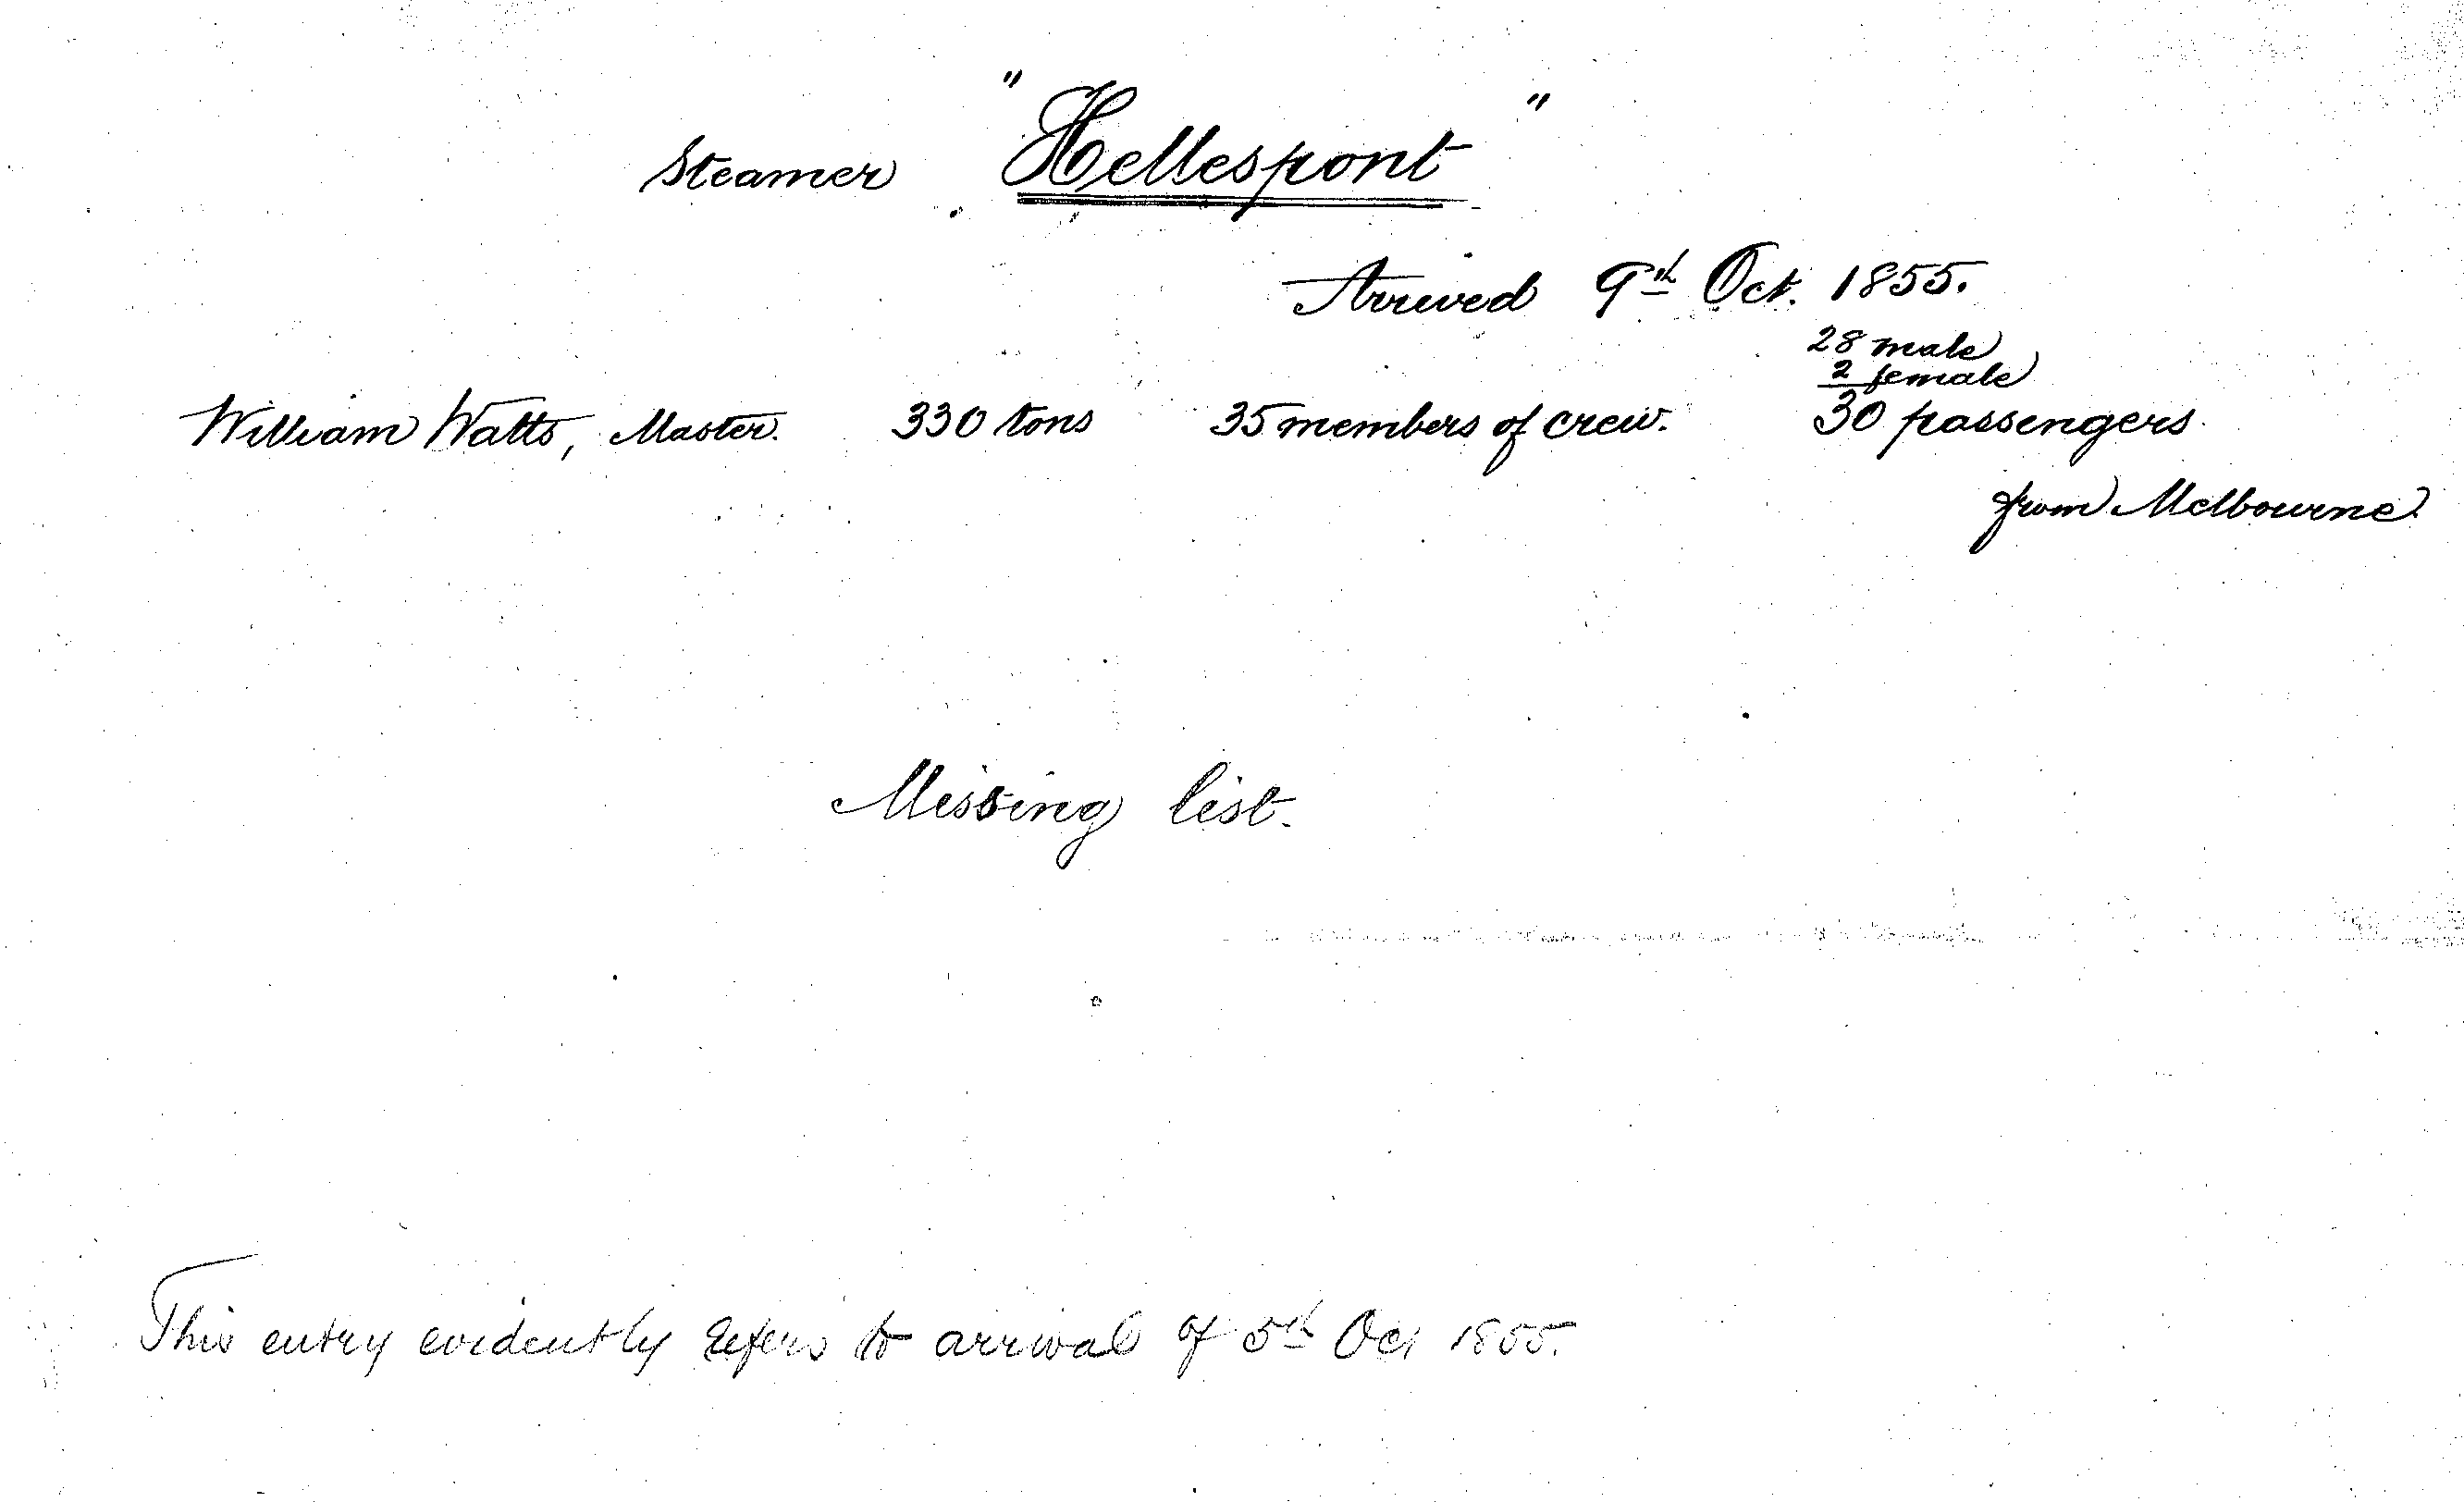 Steamer "Hellespont"
Arrived 9th Oct. 1855.
28 male
2 female
William Watts, Master. 330 tons 35 members of crew. 30 passengers
from Melbourne.
Missing list.
This entry evidently refers to arrival of 5th Oct 1855.